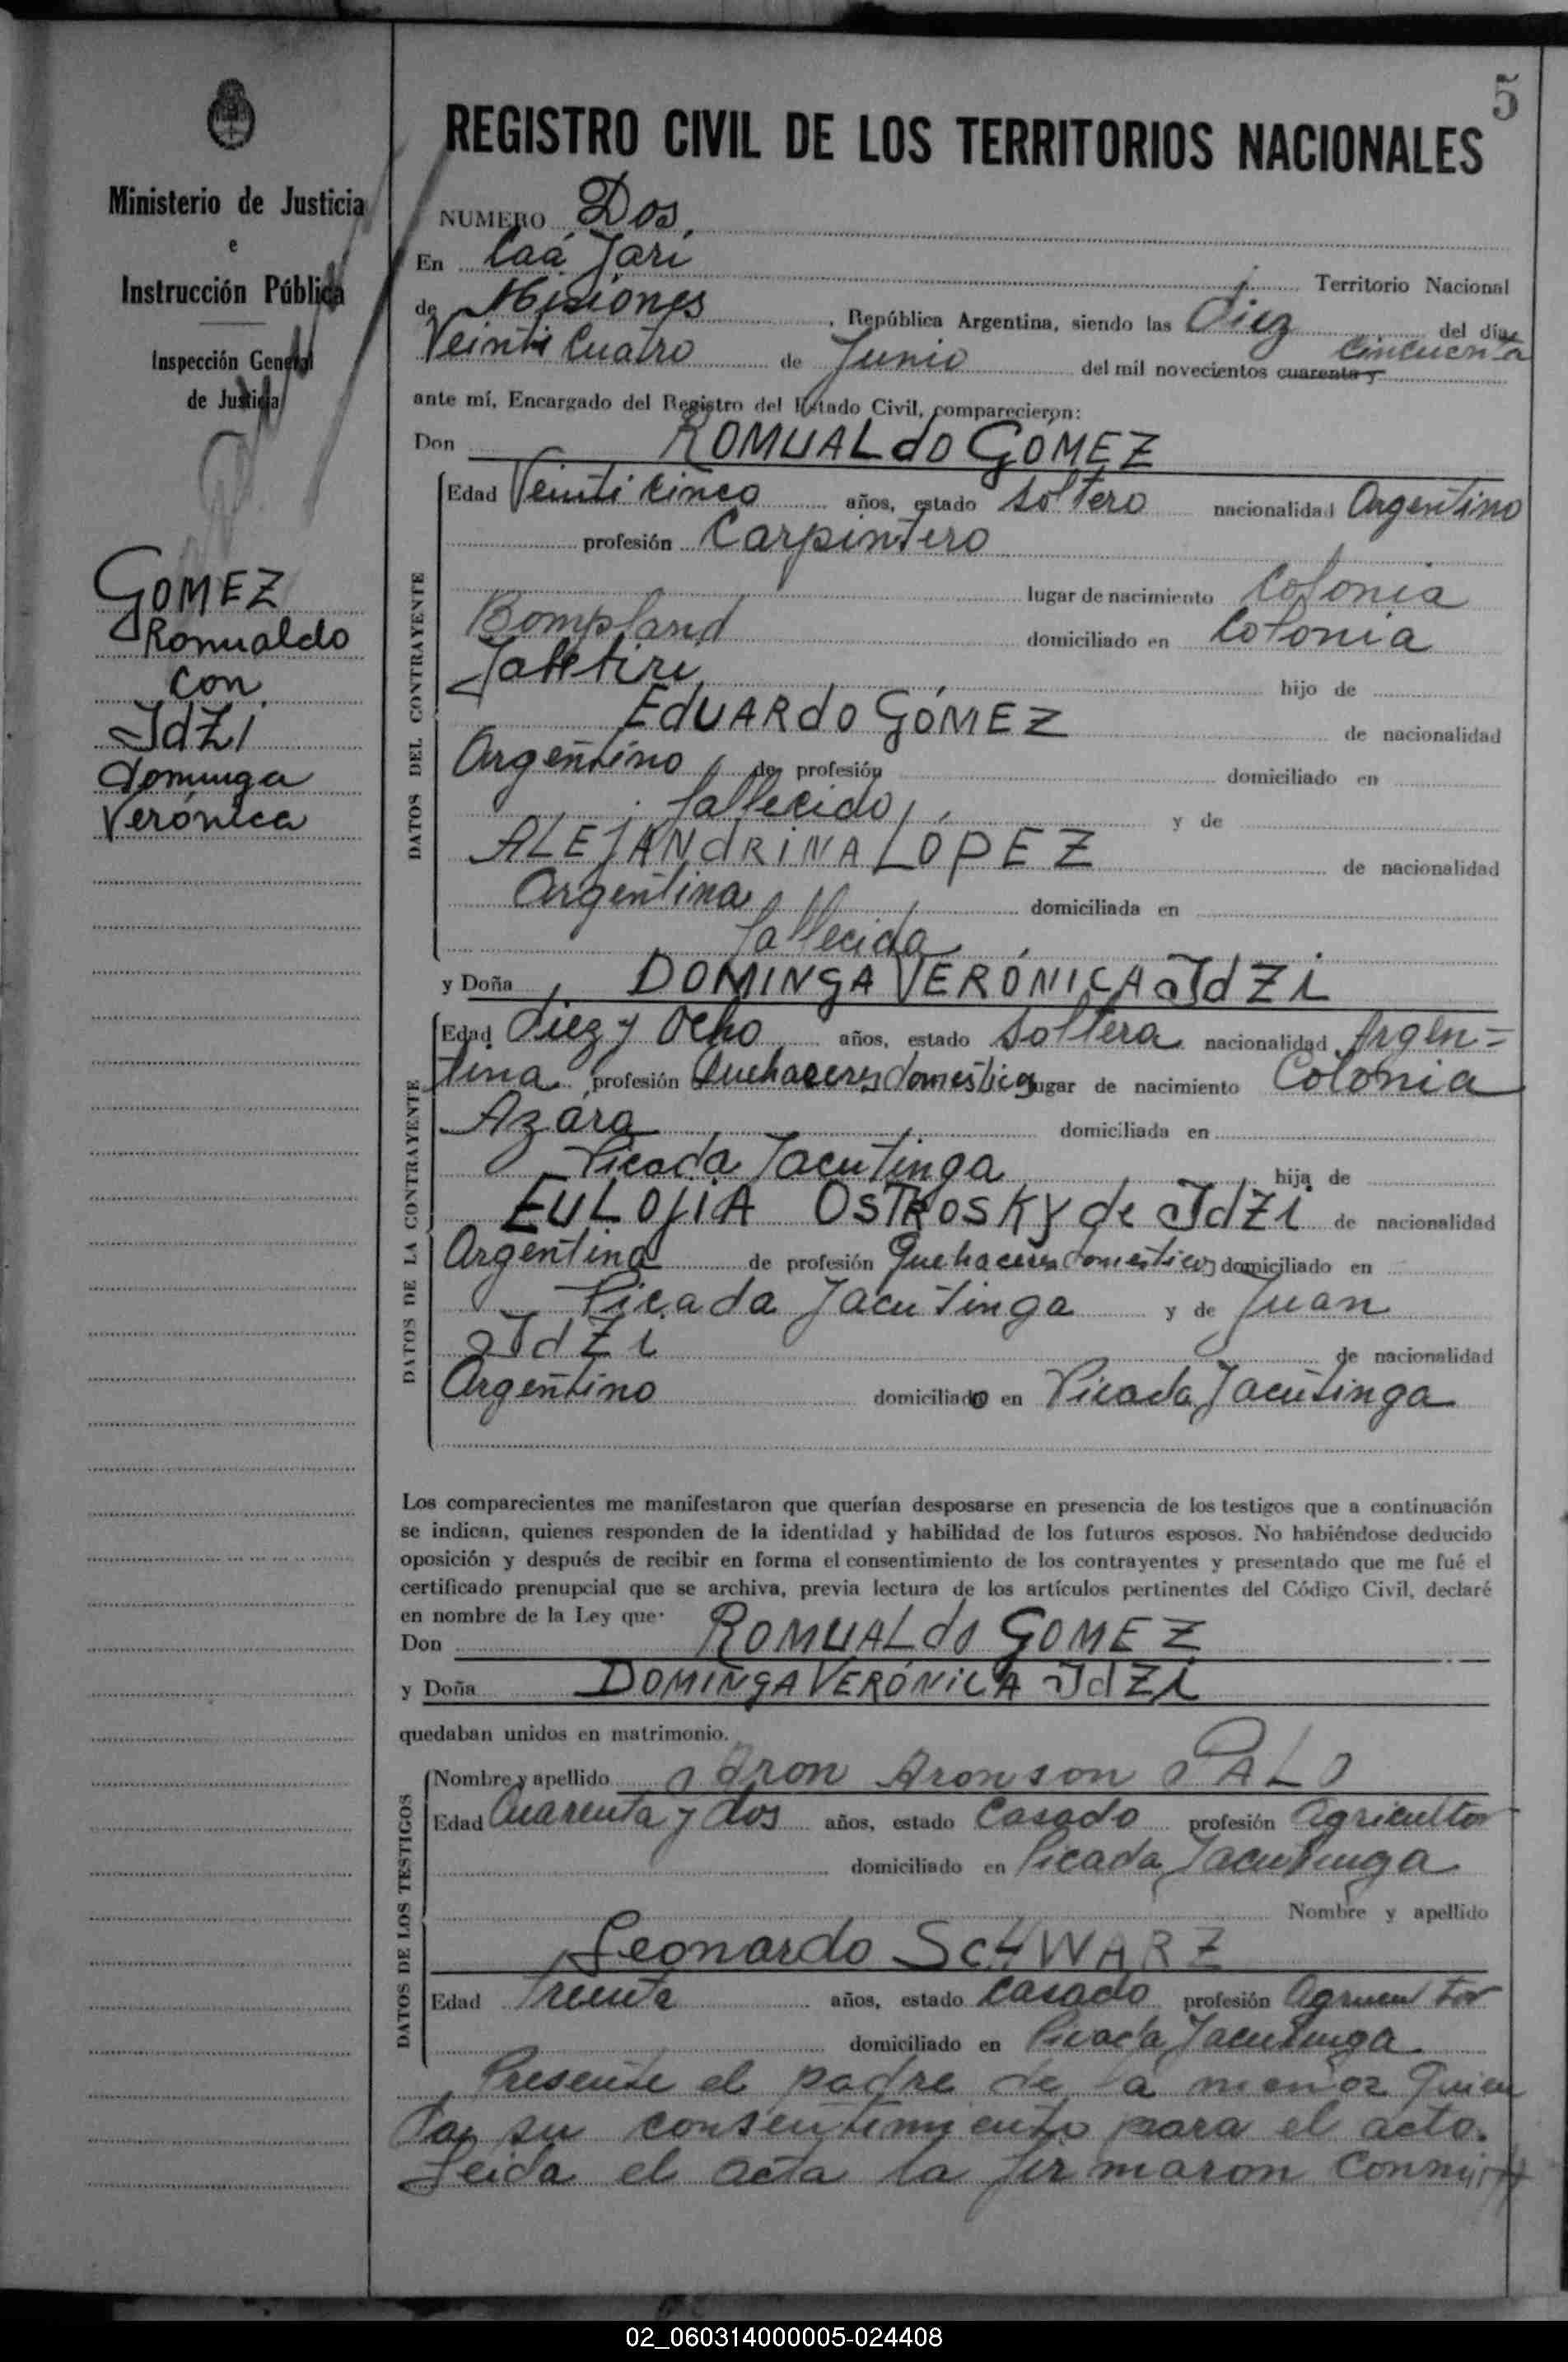 5
REGISTRO CIVIL DE LOS TERRITORIOS NACIONALES
Ministerio de Justicia
e
Instrucción Pública
Inspección General
de Justicia
GOMEZ
Romualdo
con
IdZi
dominga
Verónica
NUMERO Dos
En Caá Jari Territorio Nacional
de Misiones, República Argentina, siendo las diez del día
Veinti Cuatro de Junio del mil novecientos cuarenta y cincuenta
ante mí, Encargado del Registro del Estado Civil, comparecieron:
Don ROMUALdO GÓMEZ
DATOS DEL CONTRAYENTE
Edad Veinti cinco años, estado Soltero nacionalidad Argentino
profesión Carpintero
lugar de nacimiento Colonia
Bompland domiciliado en Colonia
hijo de
EdUARdO GÓMEZ de nacionalidad
Argentino de profesión domiciliado en
fallecido y de
ALEJANdRiNA LÓPEZ de nacionalidad
Argentina domiciliada en
fallecida
y Doña DOMINGA VERÓNICA IdZi
DATOS DE LA CONTRAYENTE
Edad diez y Ocho años, estado Soltera nacionalidad Argen=
tina profesión Quehaceres domesticos lugar de nacimiento Colonia
Azára domiciliada en
Picada Jacutinga hija de
EULOJIA OSTROSKY de IdZi de nacionalidad
Argentina de profesión Quehaceres domesticos domiciliado en
Picada Jacutinga y de Juan
IdZi de nacionalidad
Argentino domiciliado en Picada Jacutinga
Los comparecientes me manifestaron que querían desposarse en presencia de los testigos que a continuación
se indican, quienes responden de la identidad y habilidad de los futuros esposos. No habiéndose deducido
oposición y después de recibir en forma el consentimiento de los contrayentes y presentado que me fué el
certificado prenupcial que se archiva, previa lectura de los artículos pertinentes del Código Civil, declaré
en nombre de la Ley que:
Don ROMUALdO GOMEZ
y Doña DOMINGA VERÓNICA IdZi
quedaban unidos en matrimonio.
DATOS DE LOS TESTIGOS
Nombre y apellido Aron Aronson PALO
Edad Cuarenta y dos años, estado Casado profesión Agricultor
domiciliado en Picada Jacutinga
Nombre y apellido
Leonardo SCHWARZ
Edad Treinta años, estado Casado profesión Agricultor
domiciliado en Picada Jacutinga
Presente el padre de la menor quien
da su consentimiento para el acto.
Leida el acta la firmaron conmigo
02_060314000005-024408